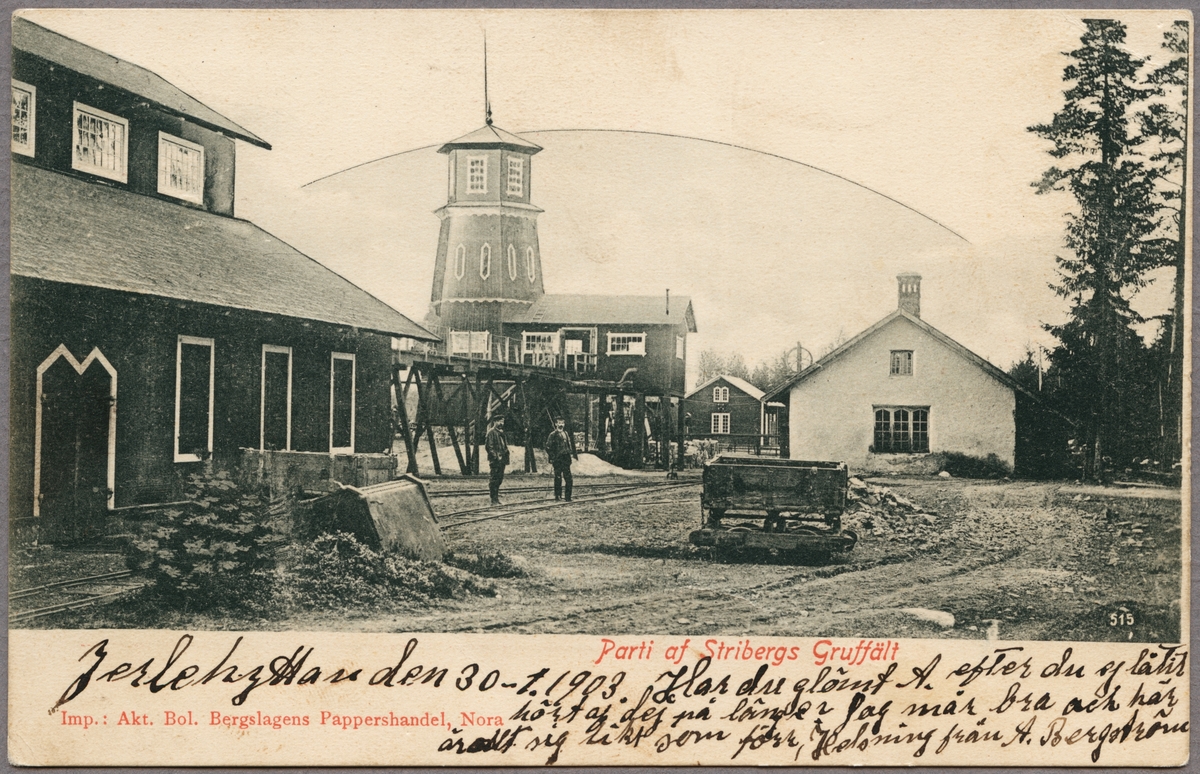 515
Parti af Stribergs Gruffält
Jerlehyttan den 30-1.1903. Har du glömt A. efter du ej låtit
Imp.: Akt. Bol. Bergslagens Pappershandel, Nora
hört af dej på länge Jag mår bra och här
är allt sig likt som förr, Helsning från A. Bergström